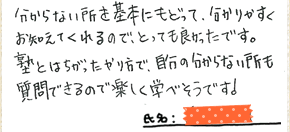 分からない所を基本にもどって、分かりやすく
お知えてくれるので、とっても良かったです。
塾とはちがったやり方で、自分の分からない所も
質問できるので楽しく学べそうです!
氏名: